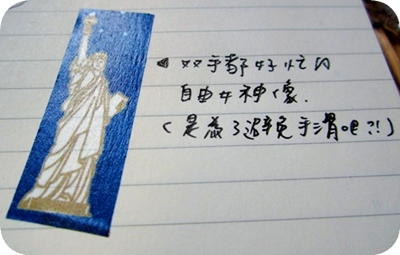 双手都好忙的
自由女神像.
(是為了避免手滑吧?!)